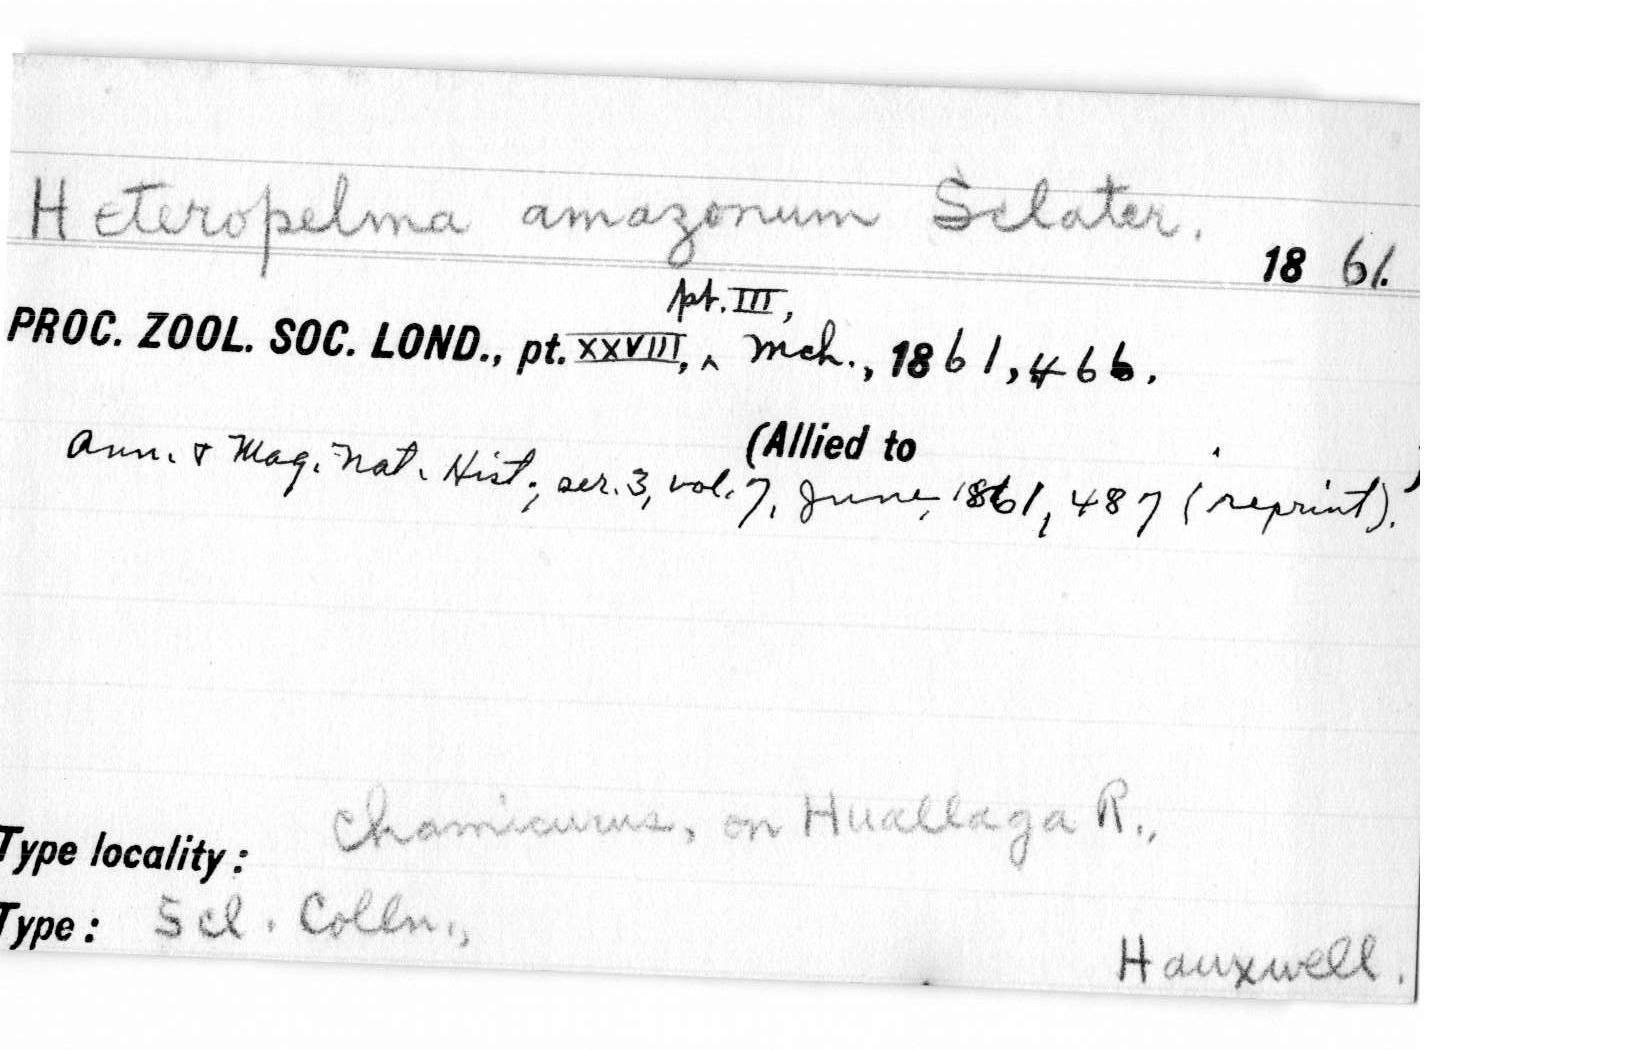 Heteropelma amazonum Sclater.
18 61.
pt. III,
PROC. ZOOL. SOC. LOND., pt. XXVIII, ^ Mch., 1861, 466.
(Allied to )
Ann. & Mag. Nat. Hist., ser. 3, vol. 7, June, 1861, 487 (reprint).
Type locality: Chamicurus, on Huallaga R.,
Type: Scl. Colln.,
Hauxwell.